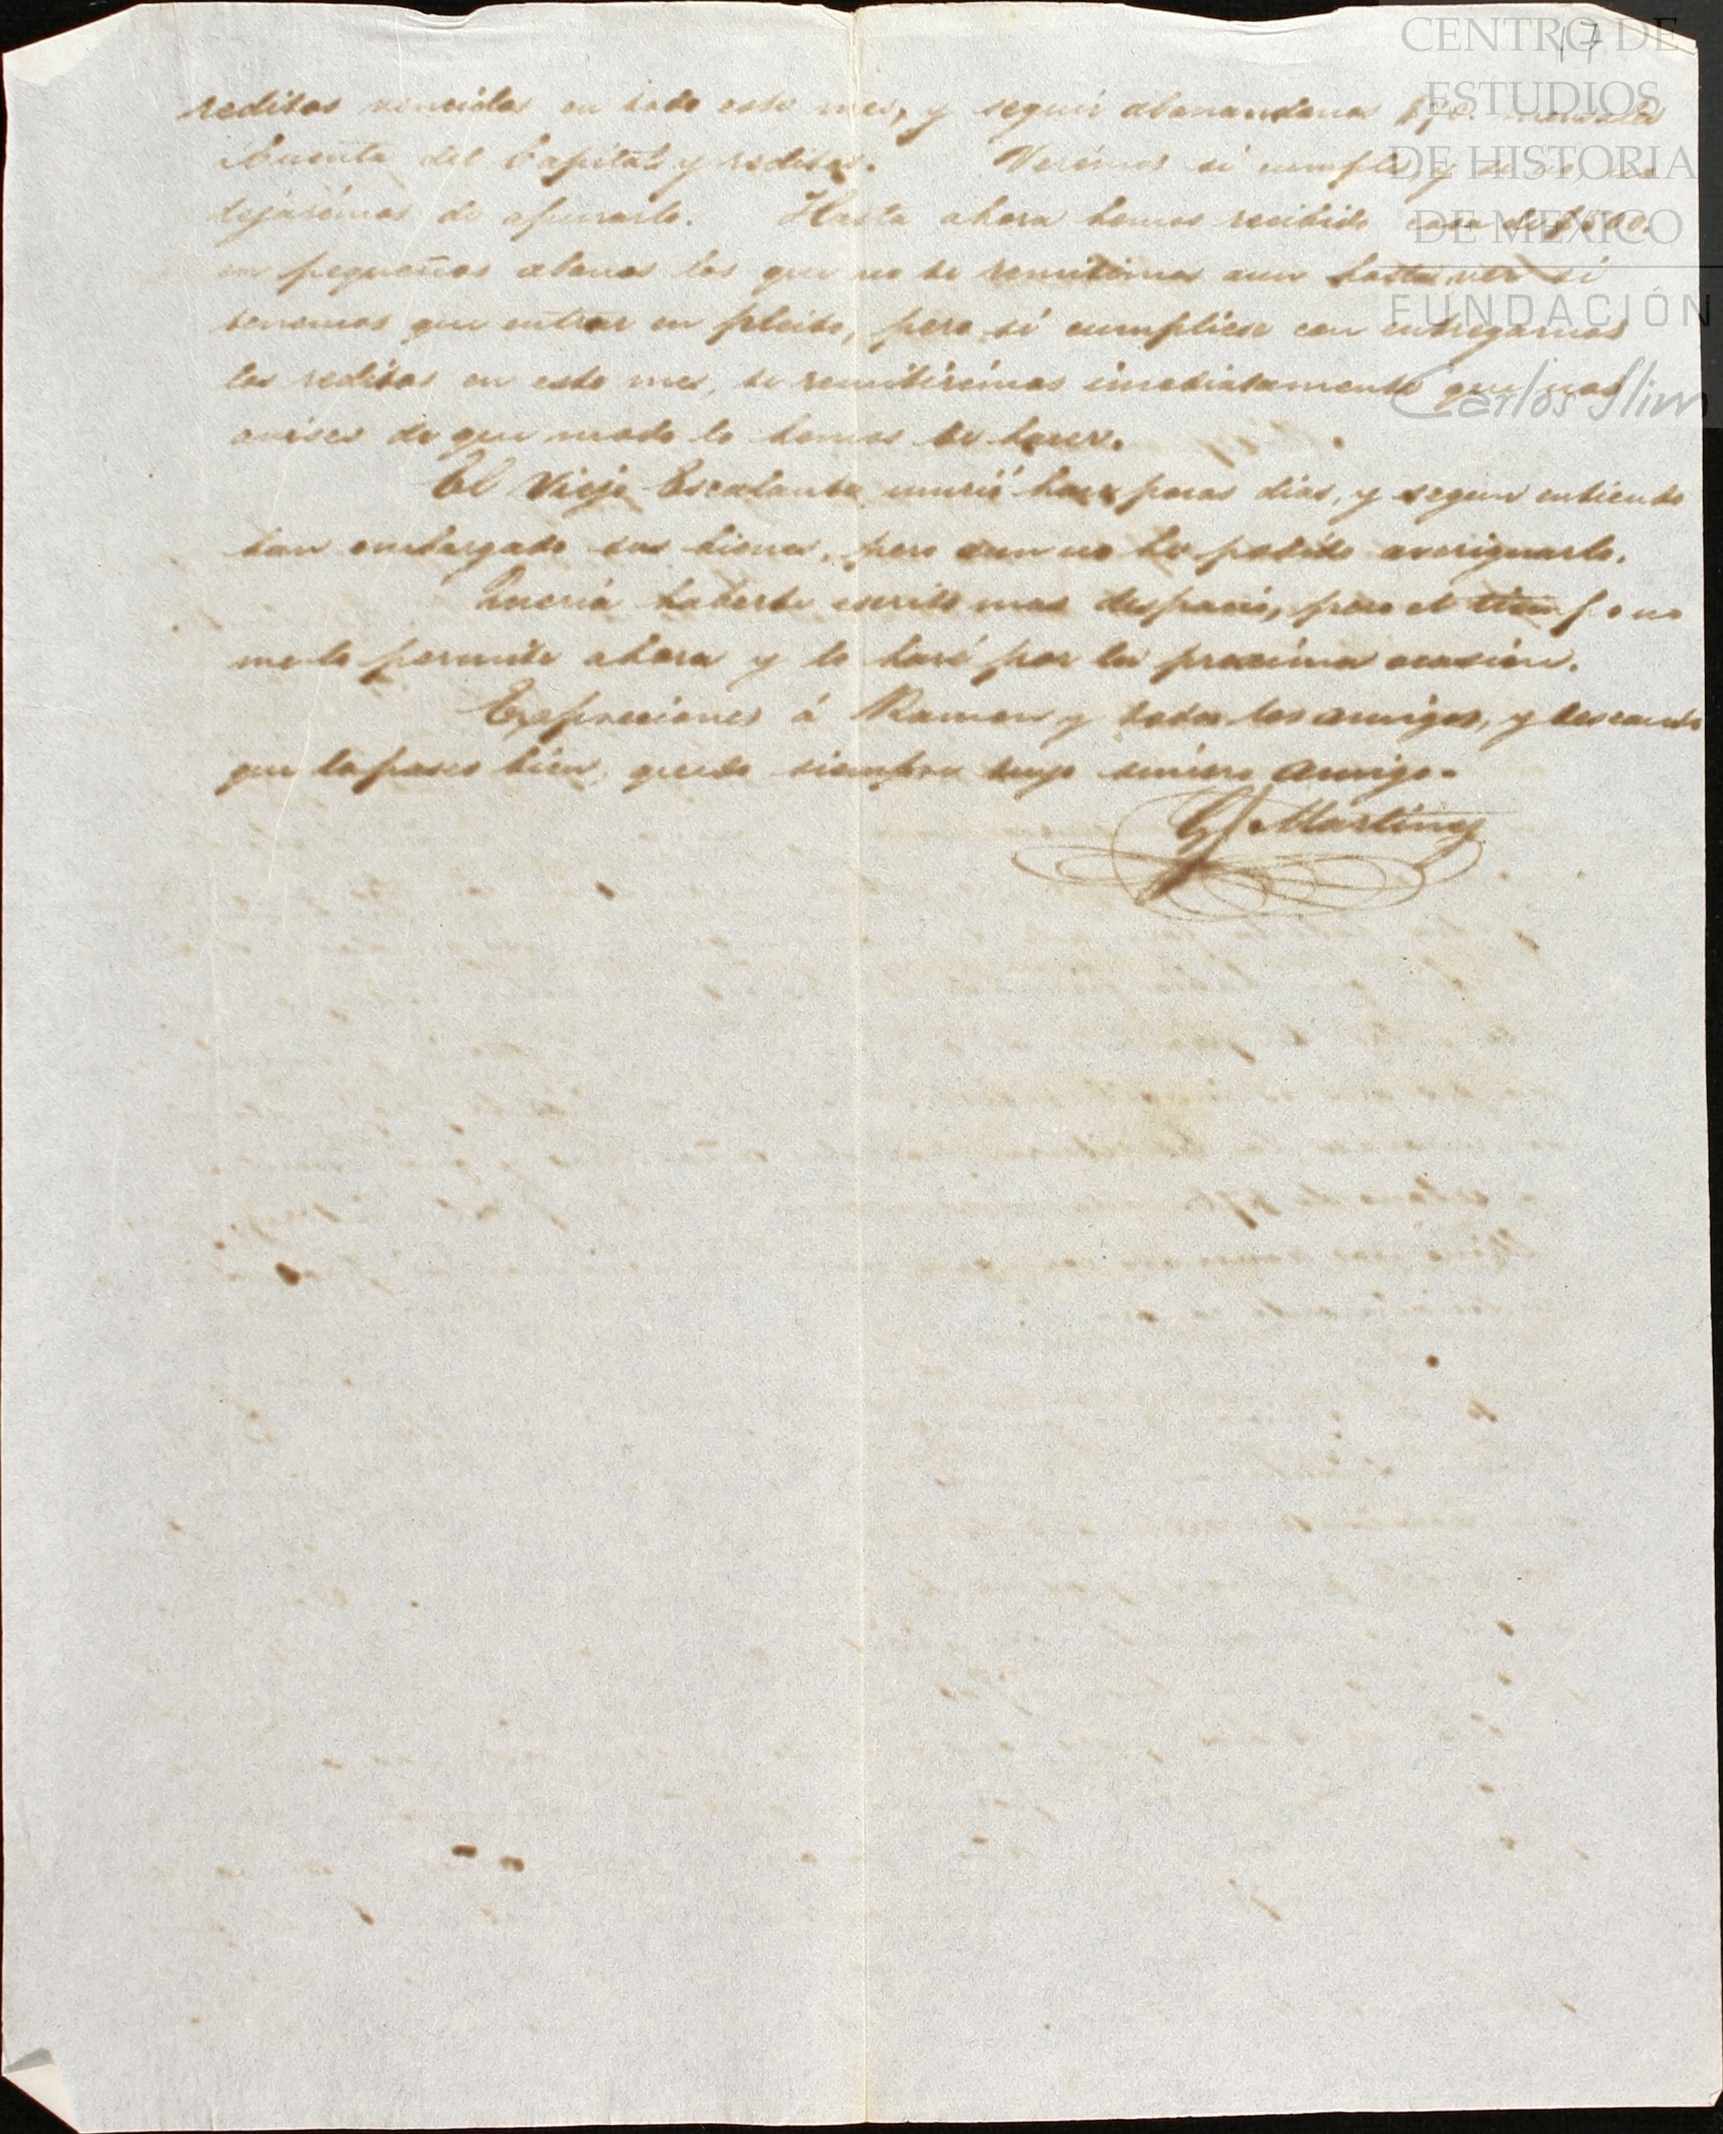 17
CENTRO DE
ESTUDIOS
DE HISTORIA
DE MÉXICO
FUNDACIÓN
Carlos Slim
reditos vencidos en todo este mes, y seguir abonandonos $70.
cuenta del Capital y reditos. Verémos si cumple, y si no, no
dejarémos de apurarlo. Hasta ahora hemos recibido cosa de
en pequeños abonos los que no te remitimos aun hasta ver si
tenemos que entrar en pleito, pero si cumpliese con entregarnos
los reditos en este mes, te remitirémos imediatamente que nos
avises de que modo lo hemos de hacer.
El Viejo Escalante murió hace pocos dias, y segun entiendo
han embargado sus bienes, pero aun no he podido averiguarlo.
Queria haberte escrito mas despacio, pero el tiempo no
me lo permite ahora y lo haré por la procsima ocasión.
Expreciones á Ramon y todos los amigos, y deseando
que lo pases bien, quedo siempre tuyo sincero amigo.
G Martinez